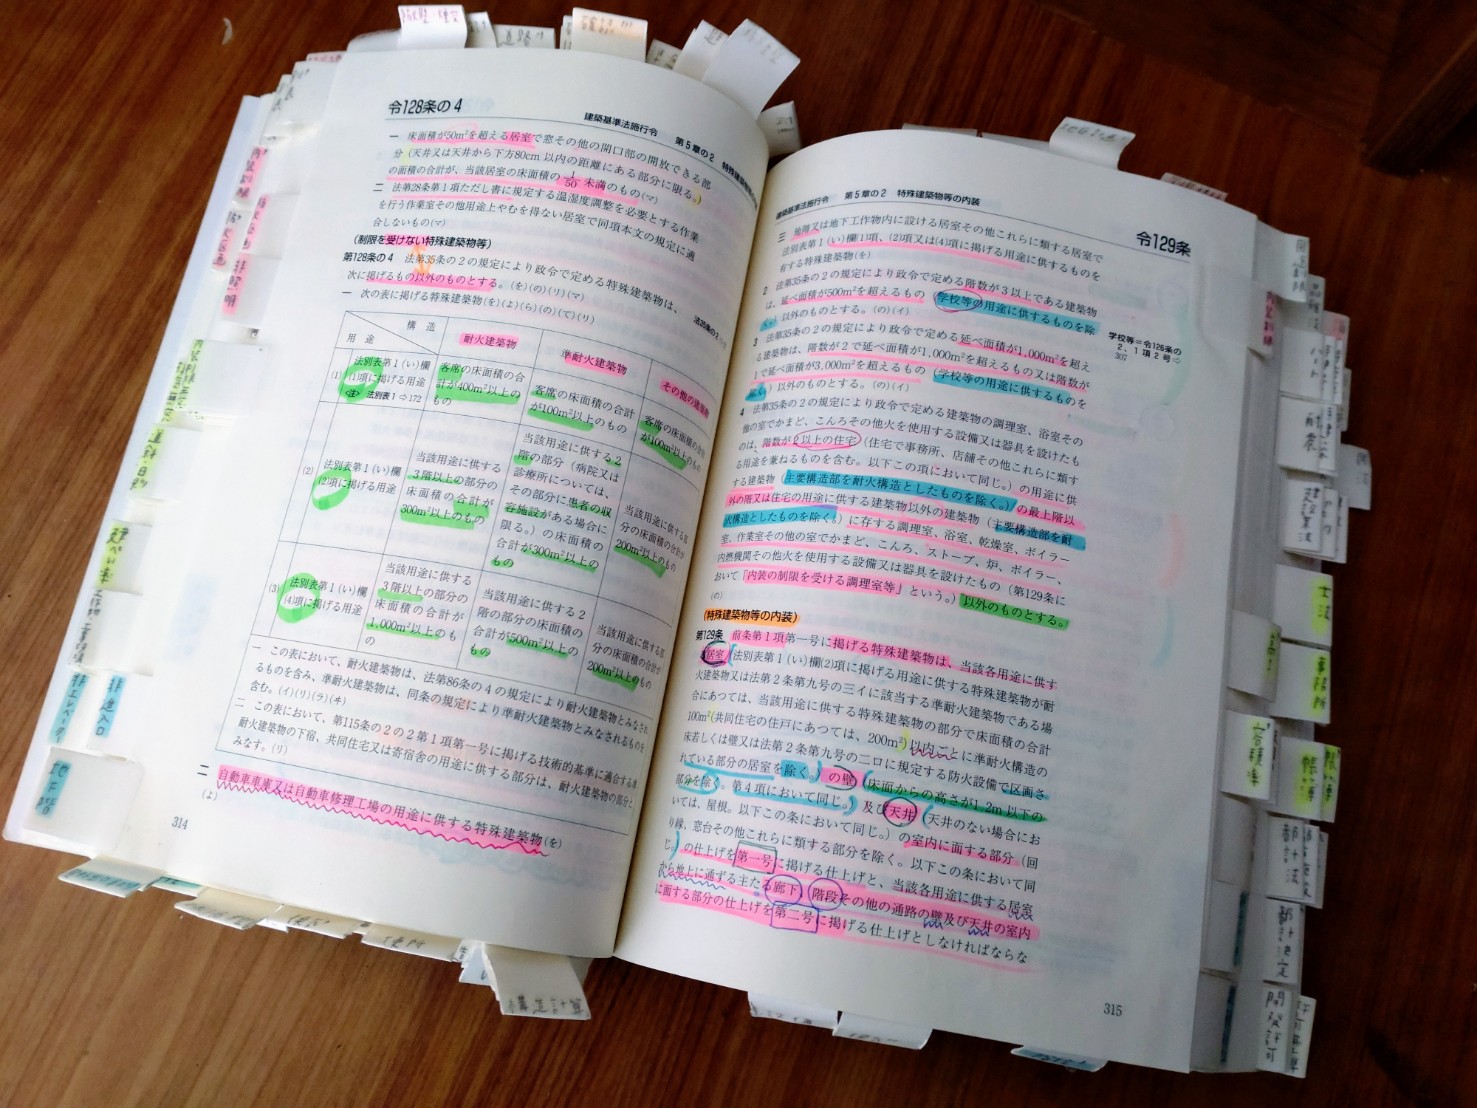 令128条の4
建築基準法施行令　第5章の2　特殊建築物
一　床面積が50m²を超える居室で窓その他の開口部の開放できる部
分（天井又は天井から下方80cm 以内の距離にある部分に限る。）
の面積の合計が、当該居室の床面積の1/50未満のもの(マ)
二　法第28条第1項ただし書に規定する温湿度調整を必要とする作業
を行う作業室その他用途上やむを得ない居室で同項本文の規定に適
合しないもの(マ)
（制限を受けない特殊建築物等）
第128条の4　法第35条の2の規定により政令で定める特殊建築物は、
次に掲げるもの以外のものとする。(を)(の)(リ)(マ)
一　次の表に掲げる特殊建築物(を)(よ)(ら)(の)(て)(リ)
構　造
用　途
耐火建築物
準耐火建築物
その他の建築物
(1)
法別表第1(い)欄
(1)項に掲げる用途
<注>　法別表1⇨172
客席の床面積の合
計が400m²以上の
もの
客席の床面積の合計
が100m²以上のもの
客席の床面積の合計
が100m²以上のもの
(2)
法別表第1(い)欄
(2)項に掲げる用途
当該用途に供する
3階以上の部分の
床面積の合計が
300m²以上のもの
当該用途に供する2
階の部分（病院又は
診療所については、
その部分に患者の収
容施設がある場合に
限る。）の床面積の
合計が300m²以上の
もの
当該用途に供する部
分の床面積の合計が
200m²以上のもの
(3)
法別表第1(い)欄
(4)項に掲げる用途
当該用途に供する
3階以上の部分の
床面積の合計が
1,000m²以上のも
の
当該用途に供する2
階の部分の床面積の
合計が500m²以上の
もの
当該用途に供する部
分の床面積の合計が
200m²以上のもの
一　この表において、耐火建築物は、法第86条の4の規定により耐火建築物とみなされ
るものを含み、準耐火建築物は、同条の規定により準耐火建築物とみなされるものを
含む。(イ)(リ)(ラ)(キ)
二　この表において、第115条の2の2第1項第一号に掲げる技術的基準に適合する準
耐火建築物の下宿、共同住宅又は寄宿舎の用途に供する部分は、耐火建築物の部分と
みなす。(リ)
二　自動車車庫又は自動車修理工場の用途に供する特殊建築物(を)
(よ)
314
建築基準法施行令　第5章の2　特殊建築物等の内装
令129条
三　地階又は地下工作物内に設ける居室その他これらに類する居室で
法別表第1(い)欄(1)項、(2)項又は(4)項に掲げる用途に供するものを
有する特殊建築物(を)
2　法第35条の2の規定により政令で定める階数が3以上である建築物
は、延べ面積が500m²を超えるもの（学校等の用途に供するものを除
く。）以外のものとする。(の)(イ)
学校等＝令126条の
2，1項2号⇨
307
3　法第35条の2の規定により政令で定める延べ面積が1,000m²を超え
る建築物は、階数が2で延べ面積が1,000m²を超えるもの又は階数が
1で延べ面積が3,000m²を超えるもの（学校等の用途に供するものを
除く。）以外のものとする。(の)(イ)
4　法第35条の2の規定により政令で定める建築物の調理室、浴室その
他の室でかまど、こんろその他火を使用する設備又は器具を設けたも
のは、階数が2以上の住宅（住宅で事務所、店舗その他これらに類す
る用途を兼ねるものを含む。以下この項において同じ。）の用途に供
する建築物（主要構造部を耐火構造としたものを除く。）の最上階以
外の階又は住宅の用途に供する建築物以外の建築物（主要構造部を耐
火構造としたものを除く。）に存する調理室、浴室、乾燥室、ボイラー
室、作業室その他の室でかまど、こんろ、ストーブ、炉、ボイラー、
内燃機関その他火を使用する設備又は器具を設けたもの（第129条に
おいて「内装の制限を受ける調理室等」という。）以外のものとする。
(の)
（特殊建築物等の内装）
第129条　前条第1項第一号に掲げる特殊建築物は、当該各用途に供す
る居室（法別表第1(い)欄(2)項に掲げる用途に供する特殊建築物が耐
火建築物又は法第2条第九号の三イに該当する準耐火建築物である場
合にあつては、当該用途に供する特殊建築物の部分で床面積の合計
100m²（共同住宅の住戸にあつては、200m²）以内ごとに準耐火構造の
床若しくは壁又は法第2条第九号の二ロに規定する防火設備で区画さ
れている部分の居室を除く。）の壁（床面からの高さが1.2m以下の
部分を除く。第4項において同じ。）及び天井（天井のない場合にお
いては、屋根。以下この条において同じ。）の室内に面する部分（回
り縁、窓台その他これらに類する部分を除く。以下この条において同
じ。）の仕上げを第一号に掲げる仕上げと、当該各用途に供する居室
から地上に通ずる主たる廊下、階段その他の通路の壁及び天井の室内
に面する部分の仕上げを第二号に掲げる仕上げとしなければならな
315
内装制限
非照明
建ぺい率
非進入口
非エレベータ
地下街
構造計算
士法
事務所
容積率
開発許可